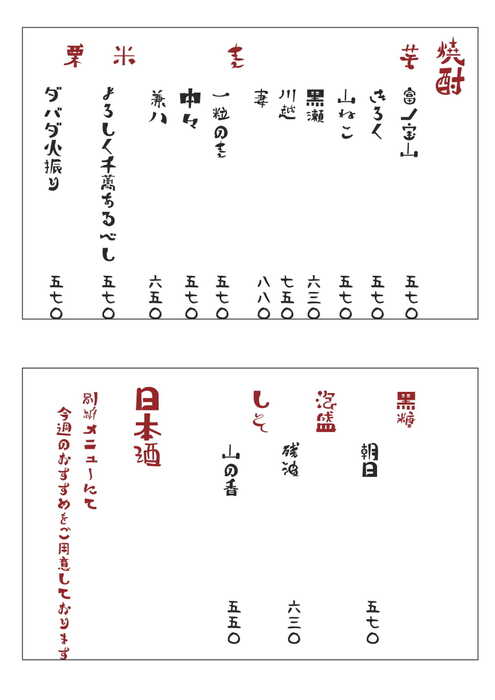 焼酎
芋
富ノ宝山 五七〇
きろく 五七〇
山ねこ 五七〇
黒瀬 六三〇
川越 七五〇
妻 八八〇
むぎ
一粒のむぎ 五七〇
中々 五七〇
兼八 六五〇
米
よろしく千萬あるべし 五七〇
栗
ダバダ火振り 五七〇
黒糖
朝日 五七〇
泡盛
残波 六三〇
しそ
山の香 五五〇
日本酒
別紙メニューにて
今週のおすすめをご用意しております